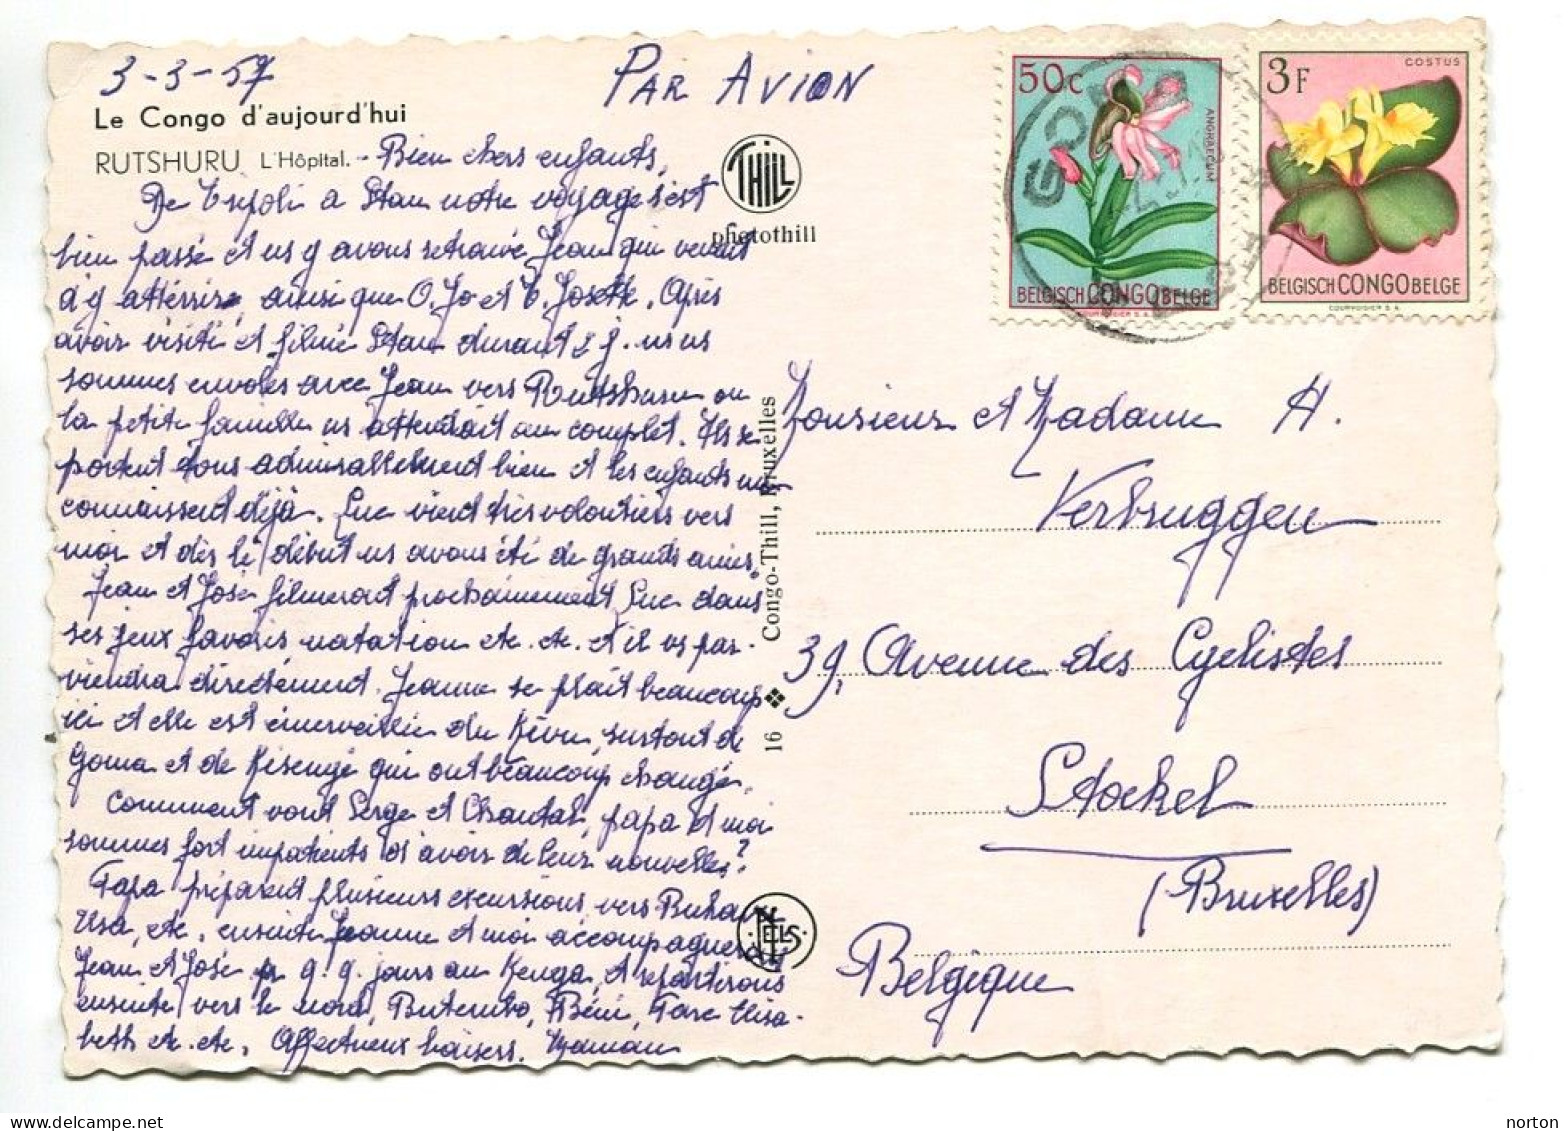 3-3-57
PAR AVION
Le Congo d'aujourd'hui
RUTSHURU L'Hôpital. - Bien chers enfants,
De Tripoli à Stan notre voyage s'est
bien passé et ns y avons retrouvé Jean qui venait
d'y atterrir, ainsi que O. Jo et T. Josette. Après
avoir visité et filmé Stan durant 2 j. ns ns
sommes envolés avec Jean vers Rutshuru ou
la petite famille ns attendait au complet. Ils se
portent tous admirablement bien et les enfants ns
connaissent déjà. Luc vient très volontiers vers
moi et dès le début ns avons été de grands amis.
Jean et José filmeront prochainement Luc dans
ses jeux favoris natation etc. etc. et il vs par-
viendra directement. Jeanne se plait beaucoup
ici et elle est émerveillée du Kivu, surtout de
Goma et de Kisengi qui ont beaucoup changé.
Comment vont Serge et Chantal, papa et moi
sommes fort impatients d'avoir de leurs nouvelles?
Papa préparent plusieurs excursions vers
Usa, etc. ensuite Jeanne et moi accompagnerons
Jean et José pr q.q. jours au et repartirons
ensuite vers le nord, Butembo, Béni, Parc Elisa-
beth etc. etc. Affectueux baisers. Maman
THill
photothill
NELS
16 ❖ Congo-Thill, Bruxelles
50C
ANGRAECUM
BELGISCH CONGO BELGE
COURVOISIER S.A.
3F
COSTUS
BELGISCH CONGO BELGE
COURVOISIER S.A.
Monsieur et Madame A.
Verbruggen
39, Avenue des Cyclistes
Stockel
(Bruxelles)
Belgique
norton